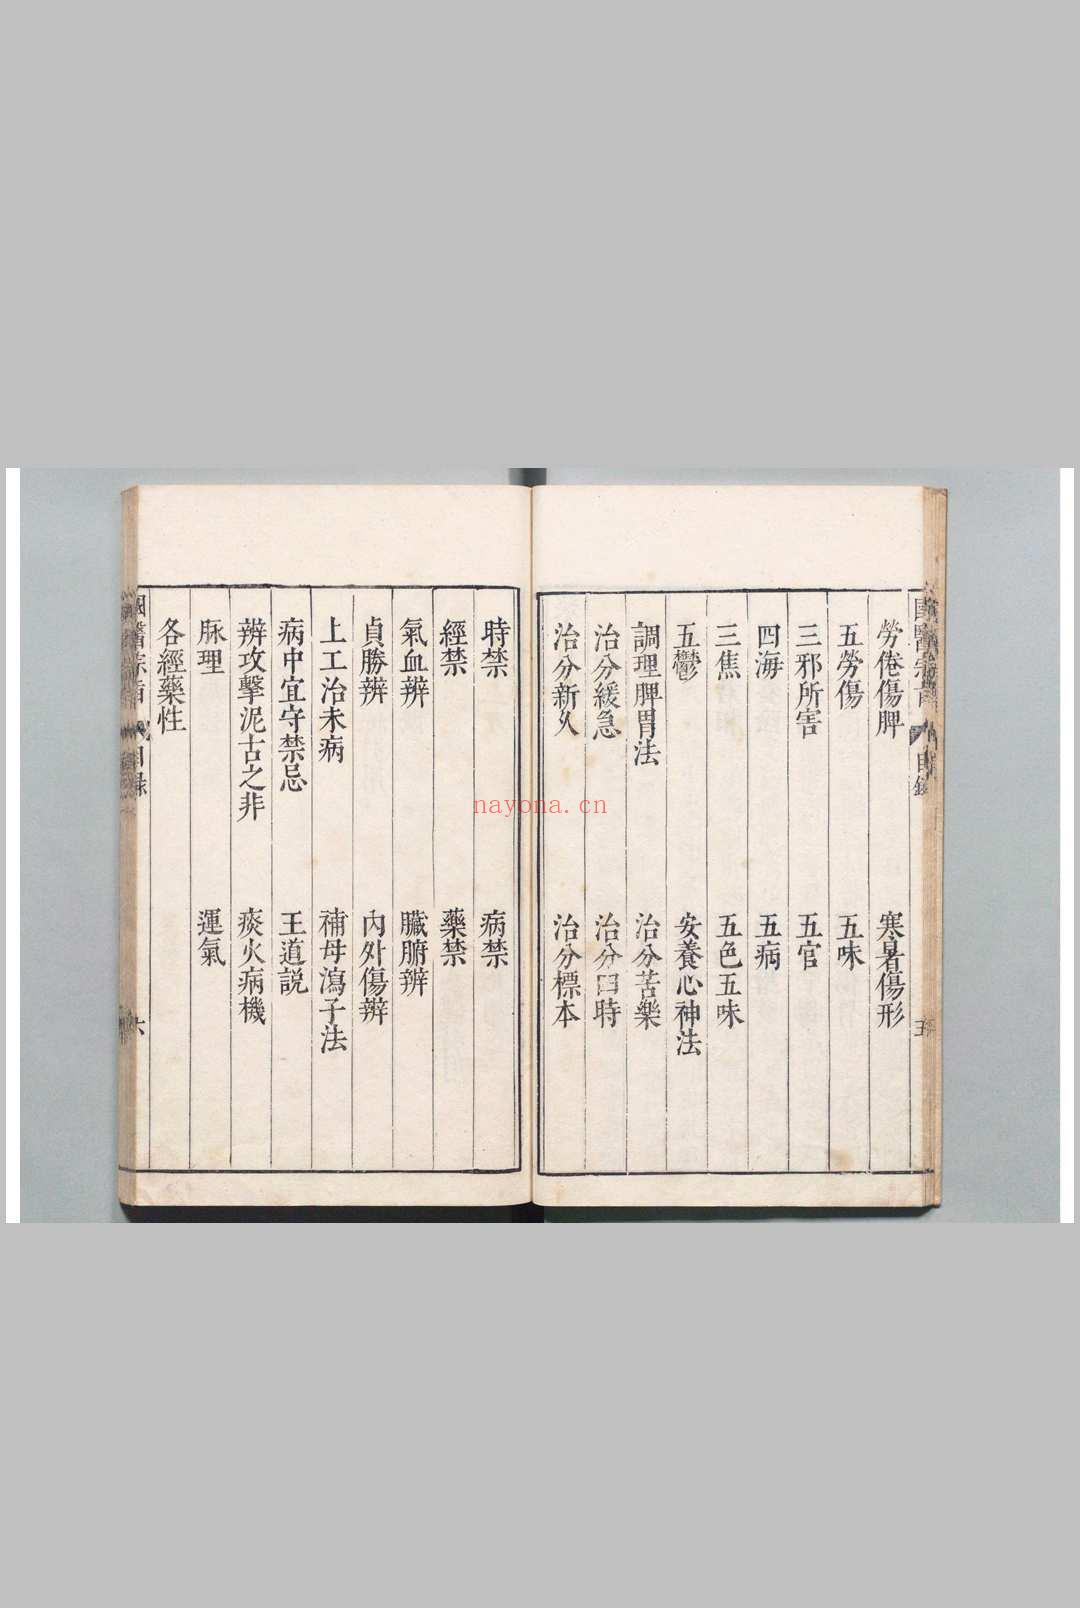 國醫宗旨 目錄 五
勞倦傷脾 寒暑傷形
五勞傷 五味
三邪所害 五官
四海 五病
三焦 五色五味
五鬱 安養心神法
調理脾胃法 治分苦樂
治分緩急 治分四時
治分新久 治分標本
時禁 病禁
經禁 藥禁
氣血辨 臟腑辨
貞勝辨 內外傷辨
上工治未病 補母瀉子法
病中宜守禁忌 王道説
辨攻擊泥古之非 痰火病機
脉理 運氣
各經藥性
國醫宗旨 目録 六
nayona.cn